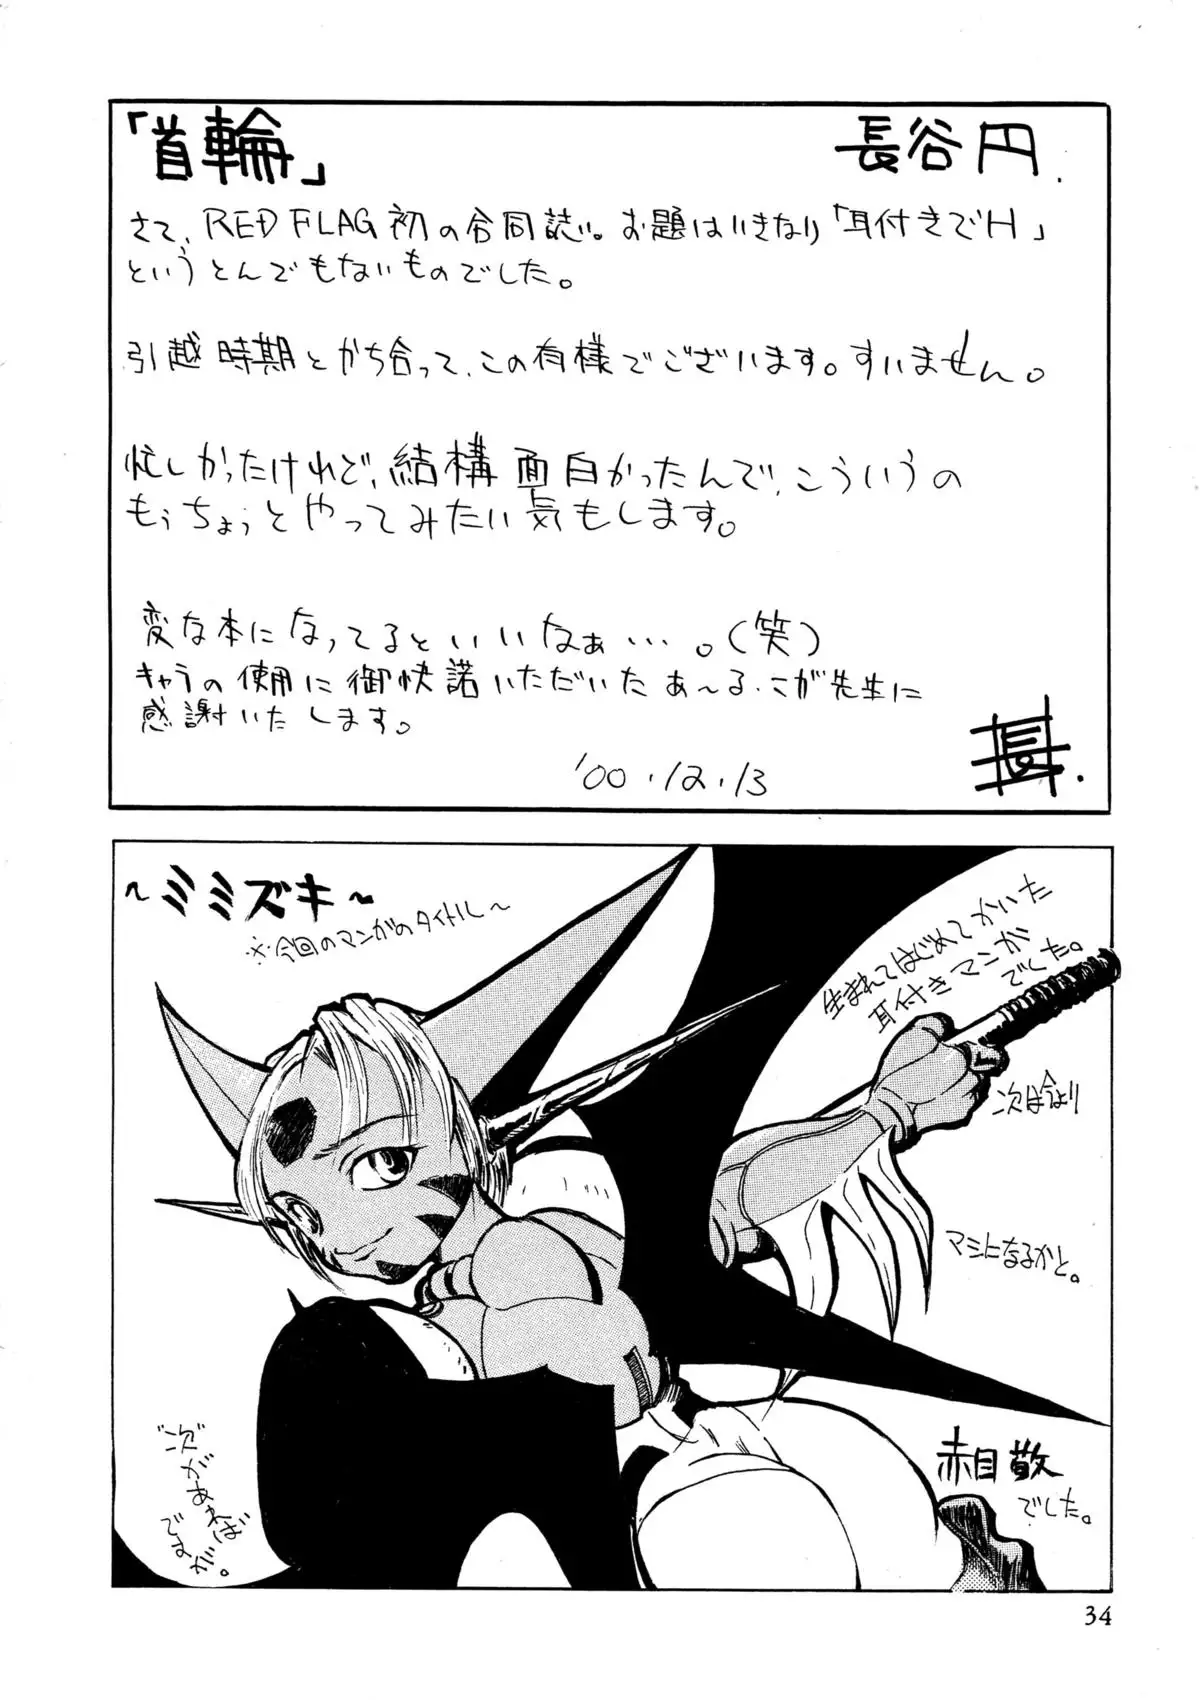 「首輪」 長谷円.
さて、RED FLAG初の合同誌。お題はいきなり「耳付きでH」
というとんでもないものでした。
引越時期とかち合って、この有様でございます。すいません。
忙しかったけれど、結構面白かったんで、こういうの
もうちょっとやってみたい気もします。
変な本になってるといいなぁ…。(笑)
キャラの使用に御快諾いただいたあ〜る・こが先生に
感謝いたします。
'00.12.13
長.
〜ミミズキ〜
※今回のマンガのタイトル〜
生まれてはじめてかいた
耳付きマンガ
でした。
次は今より
マシになるかと。
"次"が
あれば
ですが。
赤目敬
でした。
34